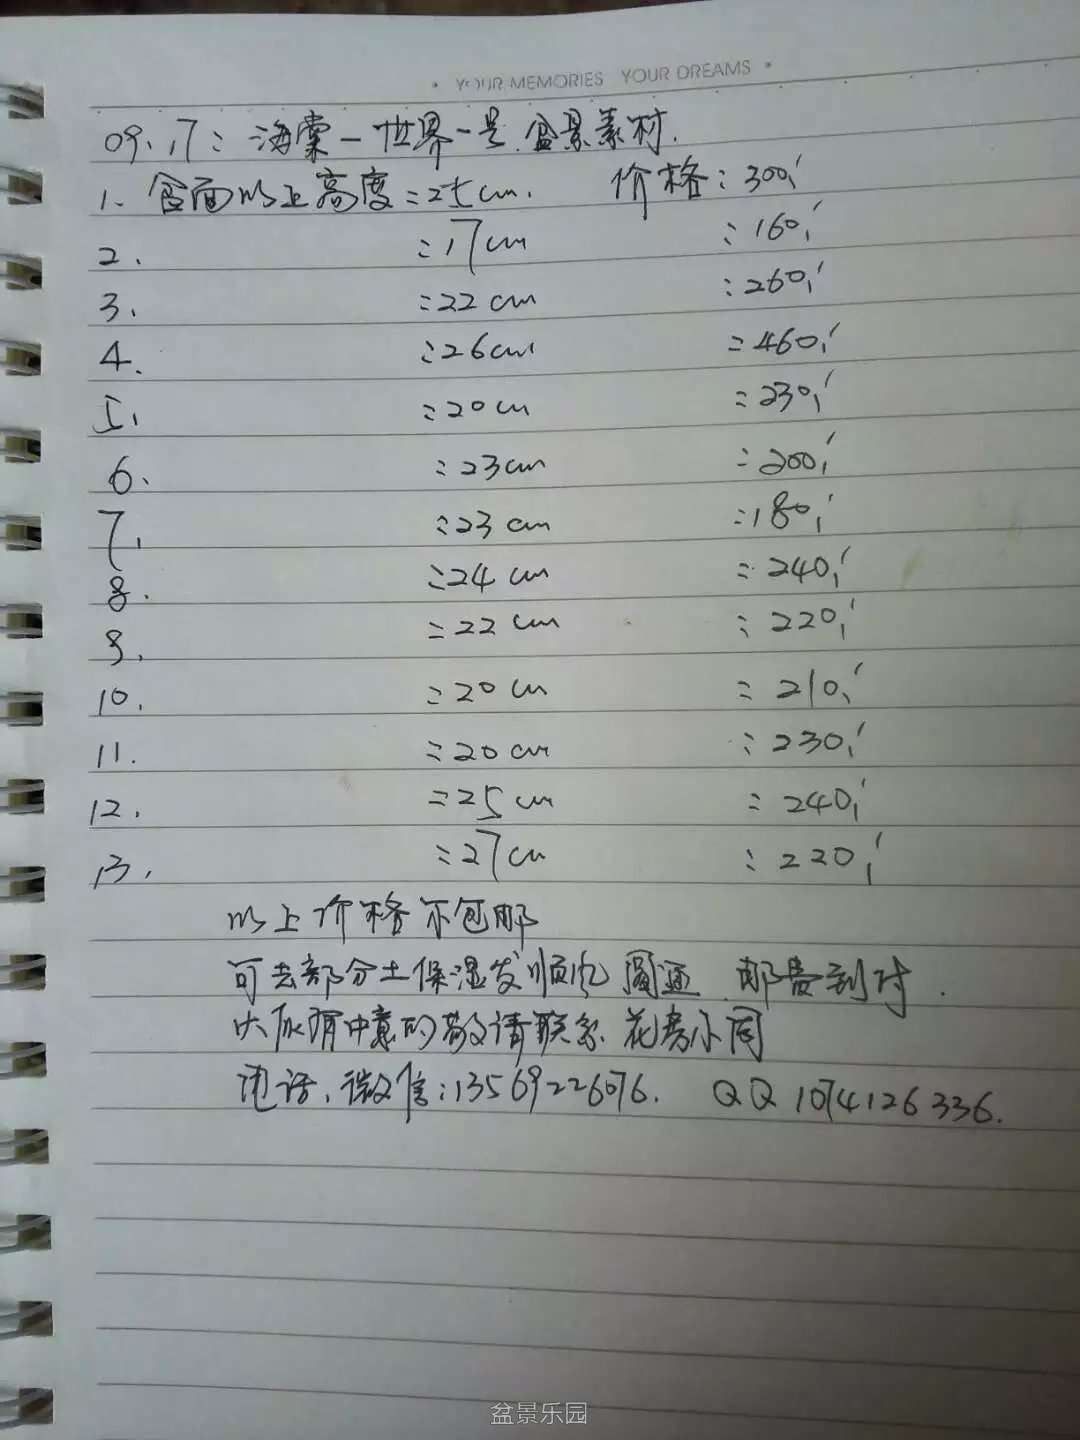 YOUR MEMORIES YOUR DREAMS
09.17: 海棠—世界一号.盆景素材.
1. 盆面以上高度:25cm. 价格:300,
2. :17cm :160,
3. :22cm :260,
4. :26cm :460,
5. :20cm :230,
6. :23cm :200,
7. :23cm :180,
8. :24cm :240,
9. :22cm :220,
10. :20cm :210,
11. :20cm :230,
12. :25cm :240,
13. :27cm :220,
以上价格不包邮
可去部分土保湿发顺风 圆通 邮费到付.
大家有中意的敬请联系.花房小周
电话、微信:13569226076. QQ 1074126336.
盆景乐园